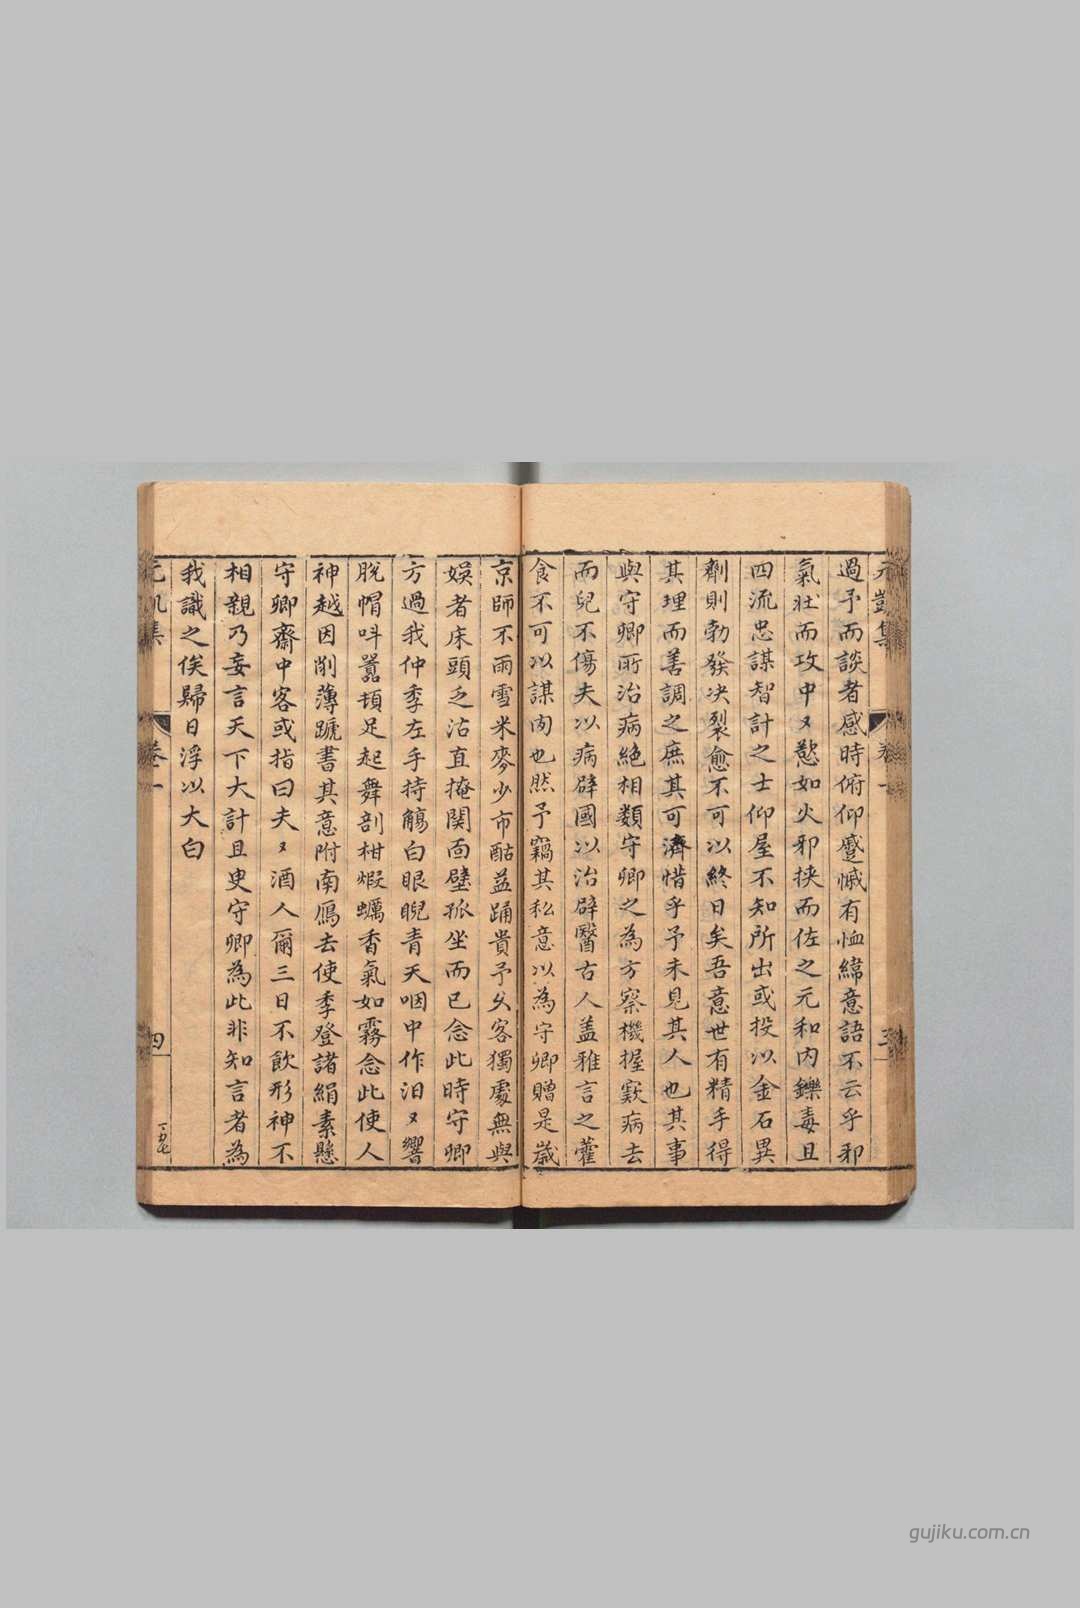 元凱集
卷一
三
過予而談者感時俯仰蹙慽有恤緯意語不云乎邪
氣壯而攻中〻慾如火邪挾而佐之元和內鑠毒且
四流忠謀智計之士仰屋不知所出或投以金石異
劑則勃發决裂愈不可以終日矣吾意世有精手得
其理而善調之庶其可濟惜乎予未見其人也其事
與守卿所治病絕相類守卿之為方察機握窾病去
而兒不傷夫以病辟國以治辟醫古人盖雅言之藿
食不可以謀肉也然予竊其私意以為守卿贈是歲
京師不雨雪米麥少市酤益踊貴予久客獨處無與
娛者床頭乏沽直掩関面壁孤坐而已念此時守卿
方過我仲季左手持觴白眼睨青天咽中作汨〻響
脫帽呌囂頓足起舞剖柑煅蠣香氣如霧念此使人
神越因削薄蹏書其意附南鴈去使季登諸絹素懸
守卿齋中客或指曰夫〻酒人爾三日不飲形神不
相親乃妄言天下大計且史守卿為此非知言者為
我識之俟歸日浮以大白
元凱集
卷一
四